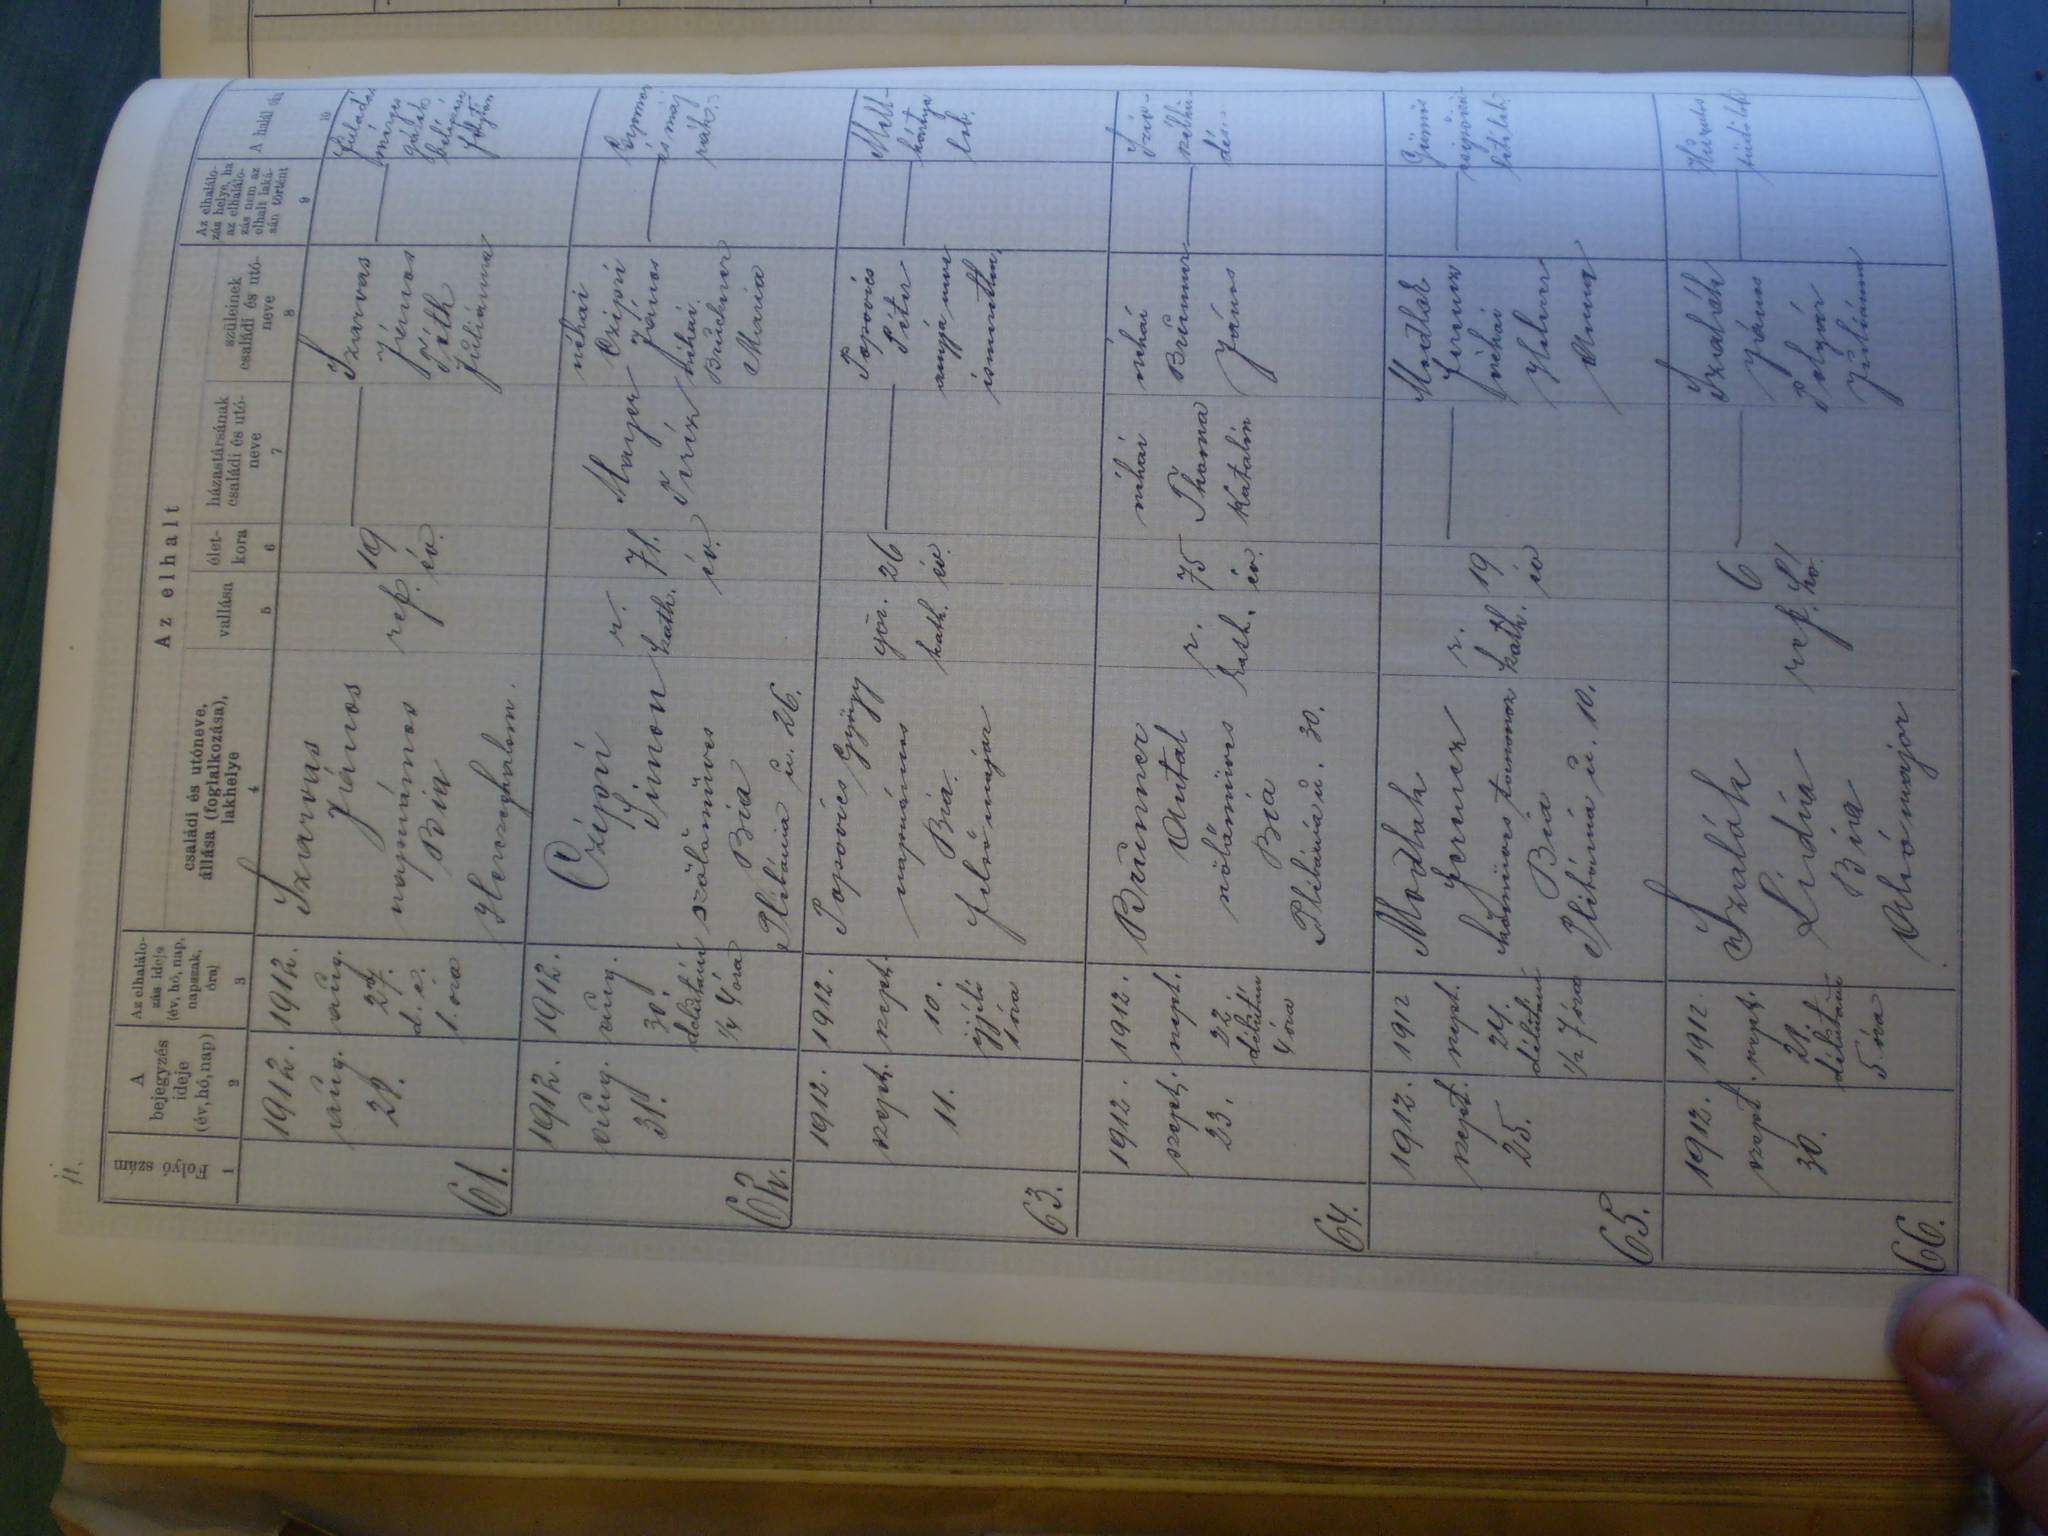 11.
Az elhalt
Folyó szám
1
A bejegyzés ideje (év, hó, nap)
2
Az elhalálozás ideje (év, hó, nap, napszak, óra)
3
családi és utóneve, állása (foglalkozása), lakhelye
4
vallása
5
életkora
6
házastársának családi és utóneve
7
szüleinek családi és utóneve
8
Az elhalálozás helye, ha az elhalálozás nem az elhalt lakásán történt
9
A halál oka
10
61.
1912.
aug.
28.
1912.
aug.
27.
d. e.
1. óra
Szarvas
János
napszámos
Bia
Herceghalom.
ref.
19
év.
Szarvas
János
Tóth
Juliánna
mérges
gázok
folytán
62.
1912.
aug.
31.
1912.
aug.
30.
délután
1/4 4 óra
Czépori
Simon
szőlőműves
Bia
Plébánia u. 26.
r.
kath.
71.
év.
Mayer
Teréz
néhai
Czépori
János
néhai
Mária
Gyomor
és máj
rák.
63.
1912.
sept.
11.
1912.
sept.
10.
éjjeli
1 óra
Popovics György
napszámos
Bia.
felsőmajor
gör.
kath.
26
év.
Popovics
Péter
anyja neve
ismeretlen,
Mell-
hártya
lob.
64.
1912.
sept.
23.
1912.
sept.
22
délután
4 óra
Brunner
Antal
szőlőműves
Bia
Plébánia u. 30.
r.
kath.
75
év.
néhai
Thoma
Katalin
néhai
Brunner
János
Szív-
szélhű-
dés.
65.
1912.
sept.
25.
1912
sept.
24.
délután
1/2 7 óra
Ferencz
kőműves
Bia
Plébánia u. 10.
r.
kath.
19
év
Ferencz
néhai
Anna
Gümős
66.
1912.
sept.
30.
1912.
sept.
28.
délután
5 óra
Szalák
Lidia
Bia
Alsómajor
ref.
6
hó.
János
Juliánna
Hurutos
tüdőlob